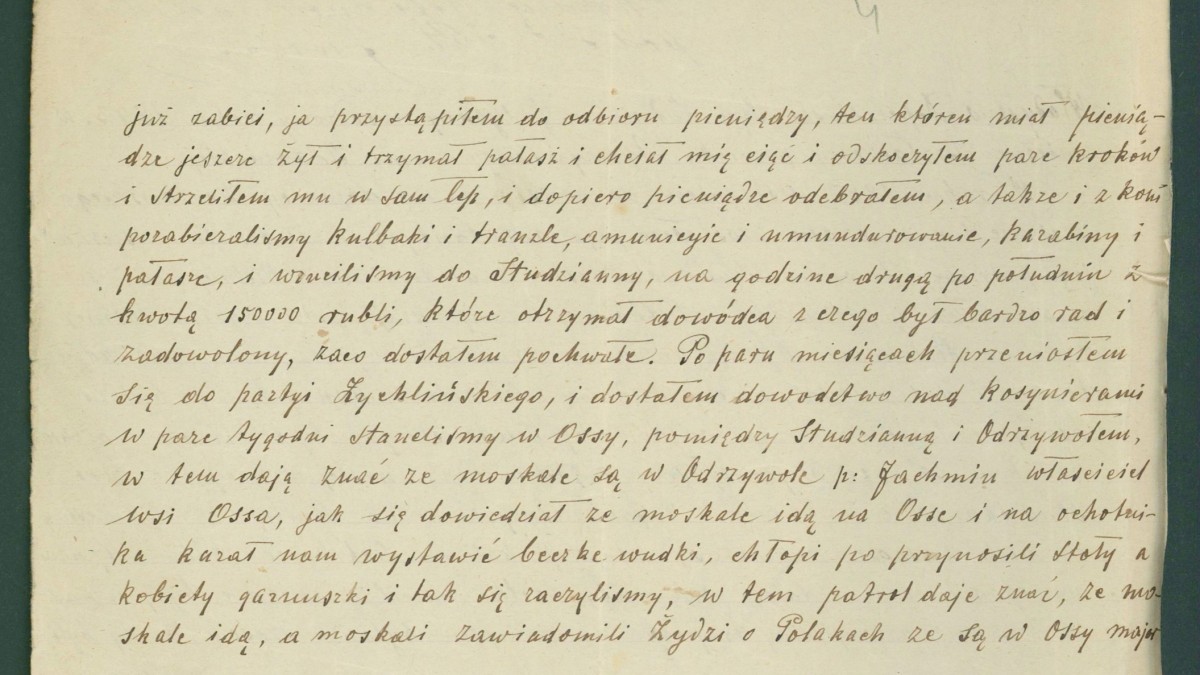 4
już zabici, ja przystąpiłem do odbioru pieniędzy, ten któren miał pienią-
dze jeszcze żył i trzymał pałasz i chciał mię ciąć i odskoczyłem pare kroków
i strzeliłem mu w sam łeb, i dopiero pieniądze odebrałem, a takze i z koni
pozabieraliśmy kulbaki i tranzle, amunicyie i umundurowanie, karabiny i
pałasze, i wruciliśmy do Studzianny, na godzine drugą po południu z
kwotą 150000 rubli, które otrzymał dowódca z czego był bardzo rad i
zadowolony, zaco dostałem pochwałe. Po paru miesiącach przeniosłem
się do partyi Żychlińskiego, i dostałem dowodctwo nad kosynierami
w pare tygodni staneliśmy w Ossy, pomiędzy Studzianną i Odrzywołem,
w tem dają znać ze moskale są w Odrzywole p: Jachmin właściciel
wsi Ossa, jak się dowiedział ze moskale idą na Osse i na ochotni-
ka kazał nam wystawić beczke wudki, chłopi po przynosili stoły a
kobiety garnuszki i tak się raczyliśmy, w tem patrol daje znać, ze mo-
skale idą, a moskali zawiadomili Żydzi o Polakach ze są w Ossy major